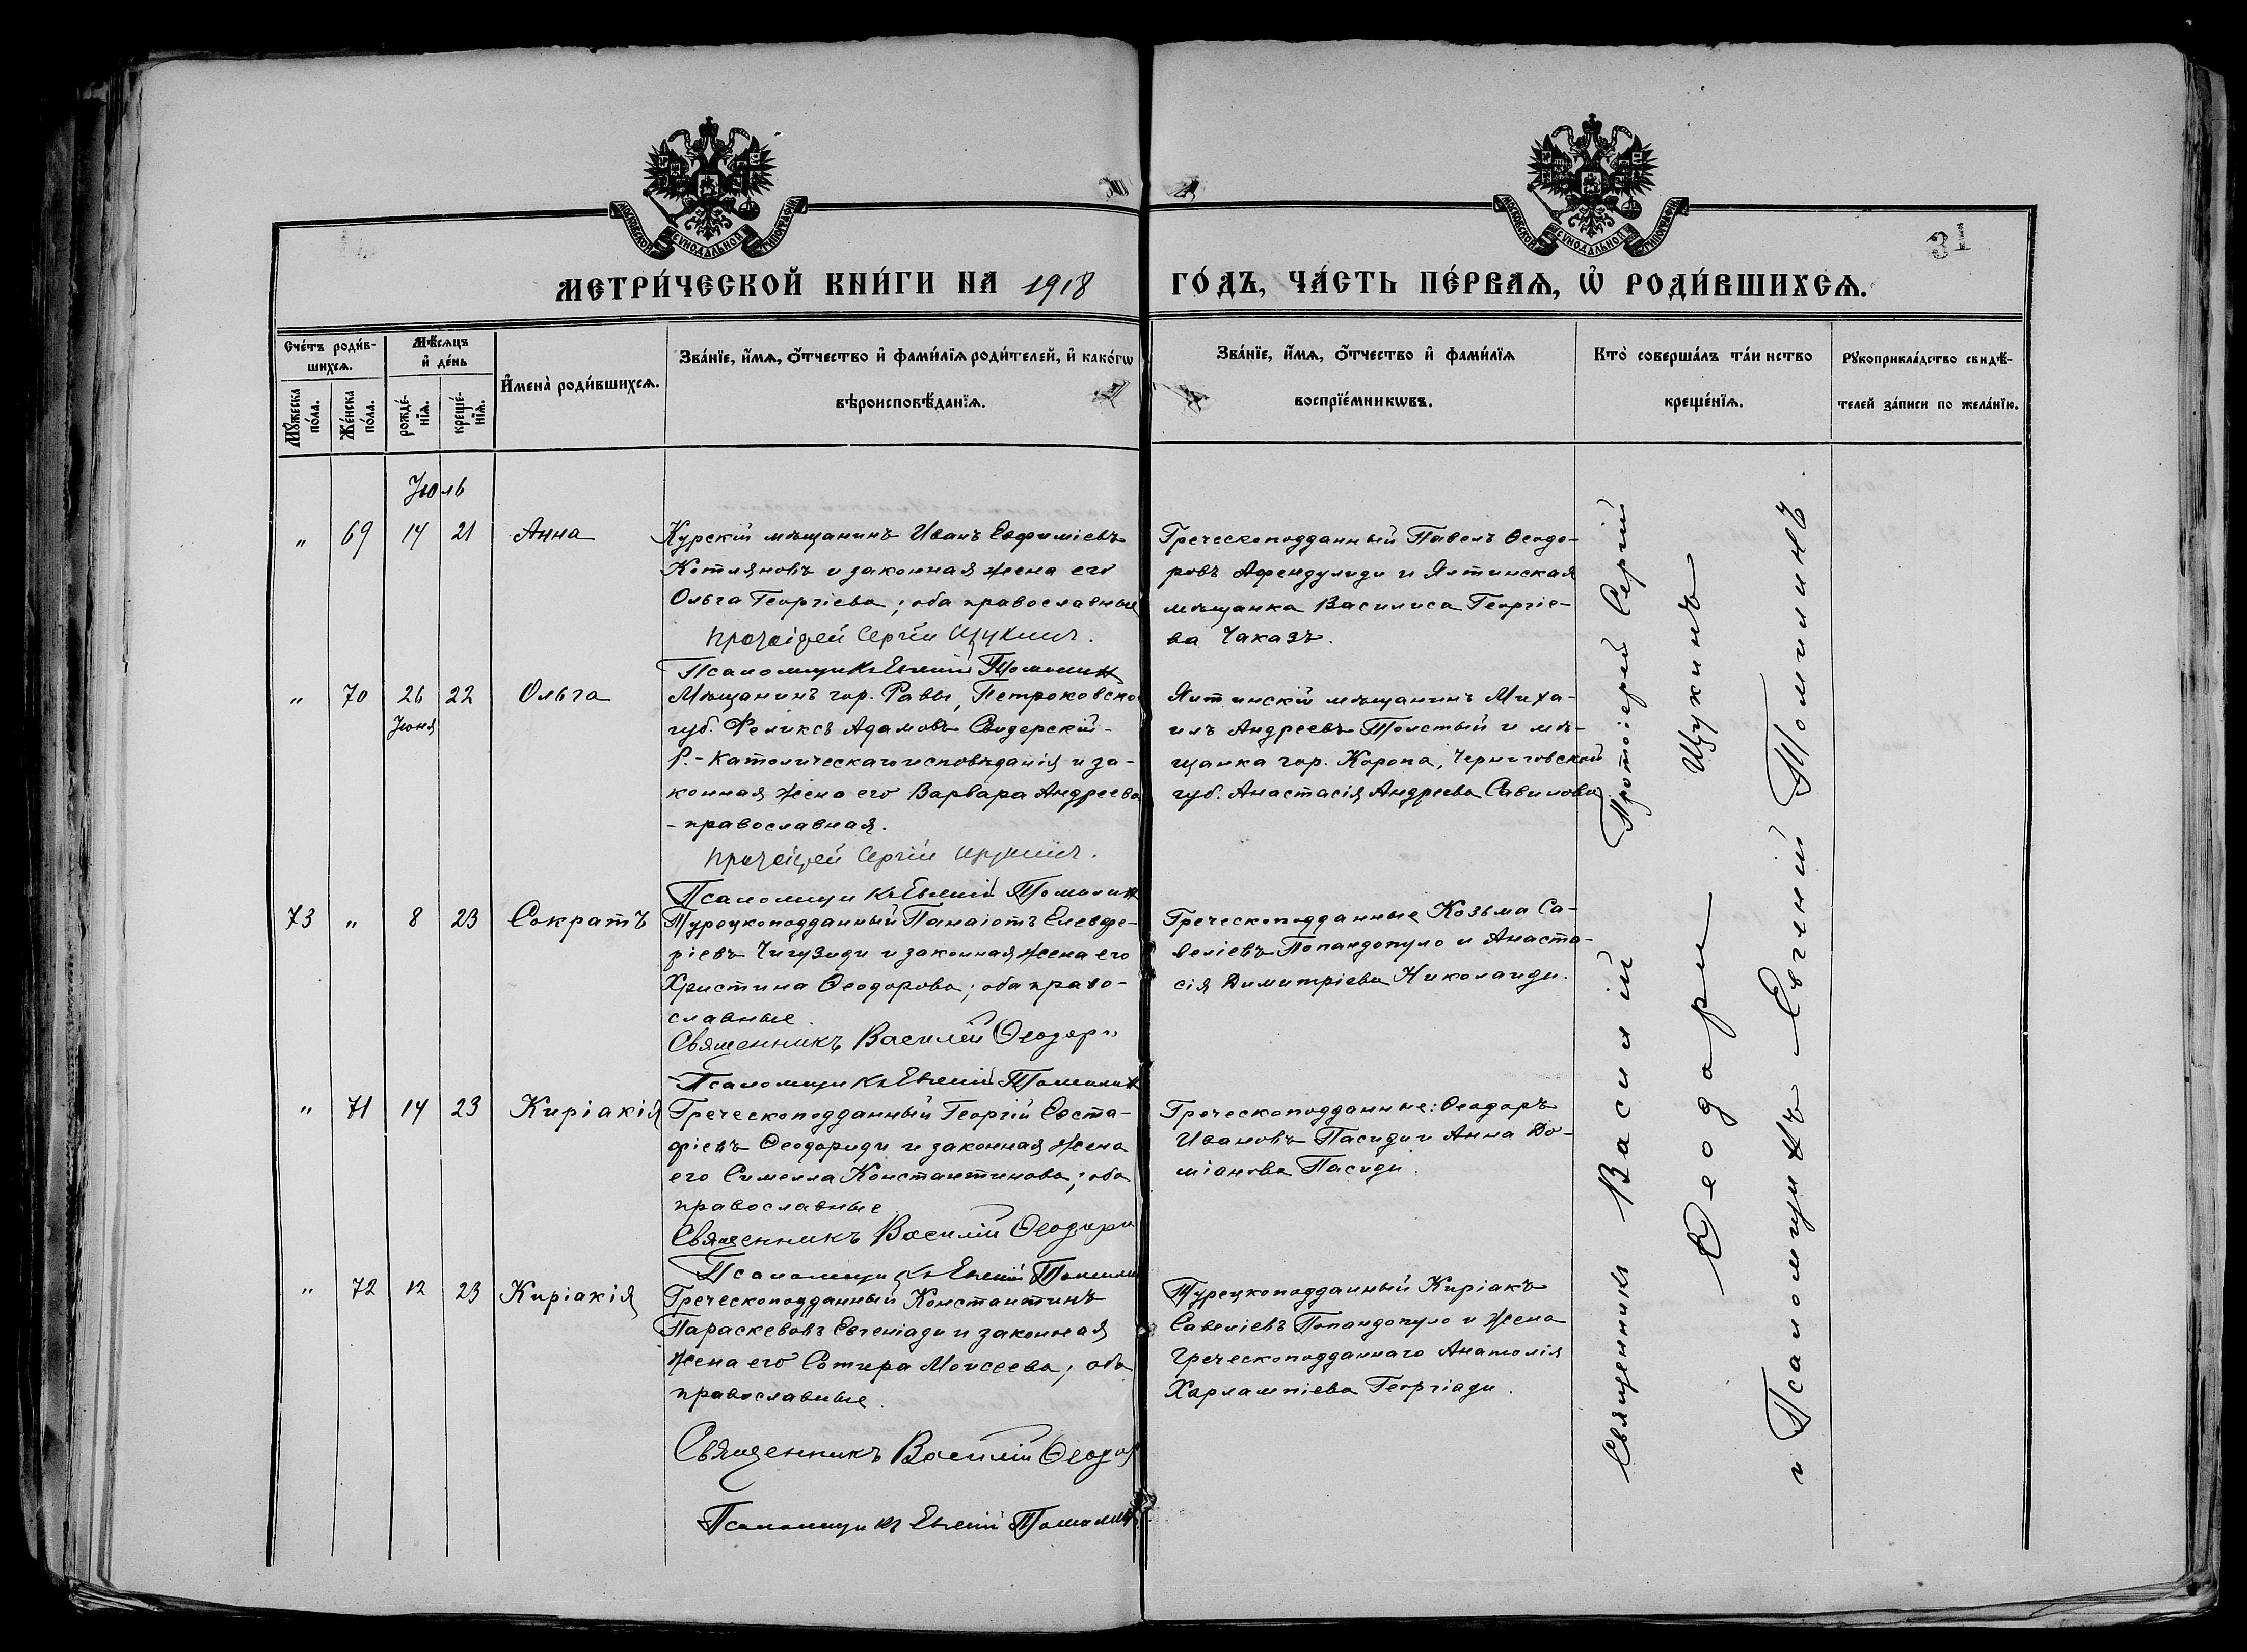 МОСКОВСКОЙ СУНОДАЛЬНОЙ ТИПОГРАФІИ
МОСКОВСКОЙ СУНОДАЛЬНОЙ ТИПОГРАФІИ
31
МЕТРИ́ЧЕСКОЙ КНИ́ГИ НА 1918
ГО́ДЪ, ЧА́СТЬ ПЕ́РВАѦ, Ѡ҆ РОДИ́ВШИХСѦ.
Сче́тъ роди́в-
шихсѧ.
Мꙋ́жеска по́ла.
Же́нска по́ла.
Мѣ́сѧцъ
и҆ де́нь
рожде́-
нїѧ.
креще́-
нїѧ.
И҆мена̀ роди́вшихсѧ.
Зва́нїе, и҆́мѧ, ѻ҆́тчество и҆ фами́лїѧ роди́телей, и҆ како́гѡ
вѣроисповѣ́данїѧ.
Зва́нїе, и҆́мѧ, ѻ҆́тчество и҆ фами́лїѧ
воспрїе́мникѡвъ.
Кто̀ соверша́лъ та́инство
креще́нїѧ.
Рꙋкоприкла́дство свидѣ́-
телей за́писи по жела́нїю.
Іюль
" 69 14 21 Анна
Курскій мѣщанинъ Иванъ Евфиміевъ
Котляновъ и законная жена его
Ольга Георгіева; оба православные
Протоіерей Сергій Щукинъ.
Псаломщикъ Евгеній Томилинъ
Греческоподданный Павелъ Ѳеодо-
ровъ Афендулиди и Ялтинская
мѣщанка Василиса Георгіе-
ва Чаказъ.
" 70 26 22 Ольга
Іюня
Мѣщанинъ гор. Равы, Петроковской
губ. Феликсъ Адамовъ Свидерскій -
Р.-Католическаго исповѣданія и за-
конная жена его Варвара Андреева
- православная.
Протоіерей Сергій Щукинъ.
Псаломщикъ Евгеній Томилинъ
Ялтинскій мѣщанинъ Миха-
илъ Андреевъ Толстый и мѣ-
щанка гор. Коропа, Черниговской
губ. Анастасія Андреева Савилова
73 " 8 23 Сократъ
Турецкоподданный Панаіотъ Елевфе-
ріевъ Чигузиди и законная жена его
Христина Ѳеодорова; оба право-
славные.
Священникъ Василій Ѳеодори
Псаломщикъ Евгеній Томилинъ
Греческоподданные Козьма Са-
веліевъ Попандопуло и Анаста-
сія Димитріева Николаиди.
" 71 14 23 Киріакія
Греческоподданный Георгій Евста-
фіевъ Ѳеодориди и законная жена
его Симелла Константинова; оба
православные
Священникъ Василій Ѳеодори
Псаломщикъ Евгеній Томилинъ
Греческоподданные: Ѳеодоръ
Ивановъ Пасиди и Анна До-
міанова Пасиди.
" 72 12 23 Киріакія
Греческоподданный Константинъ
Параскевовъ Евгеніади и законная
жена его Сотира Моисеева; оба
православные.
Священникъ Василій Ѳеодори
Псаломщикъ Евгеній Томилинъ
Турецкоподданный Киріакъ
Савеліевъ Попандопуло и жена
Греческоподданнаго Анатолія
Харлампіева Георгіади.
Священникъ Василій Протоіерей Сергій
Ѳеодори Щукинъ
и Псаломщикъ Евгеній Томилинъ.